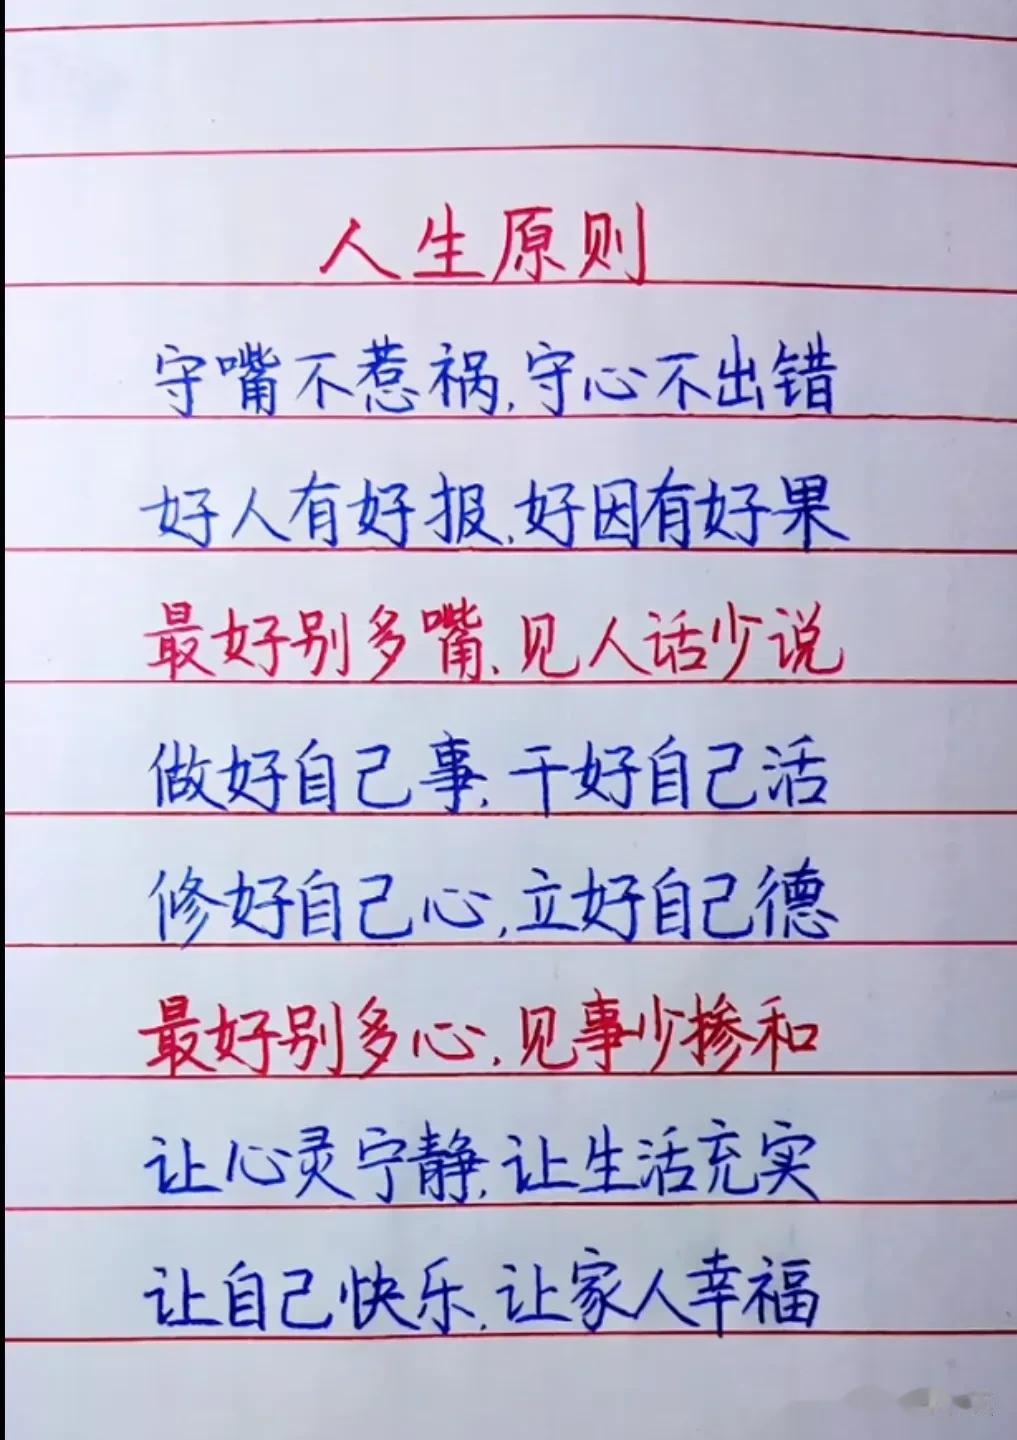 人生原则
守嘴不惹祸,守心不出错
好人有好报,好因有好果
最好别多嘴,见人话少说
做好自己事,干好自己活
修好自己心,立好自己德
最好别多心,见事少掺和
让心灵宁静,让生活充实
让自己快乐,让家人幸福